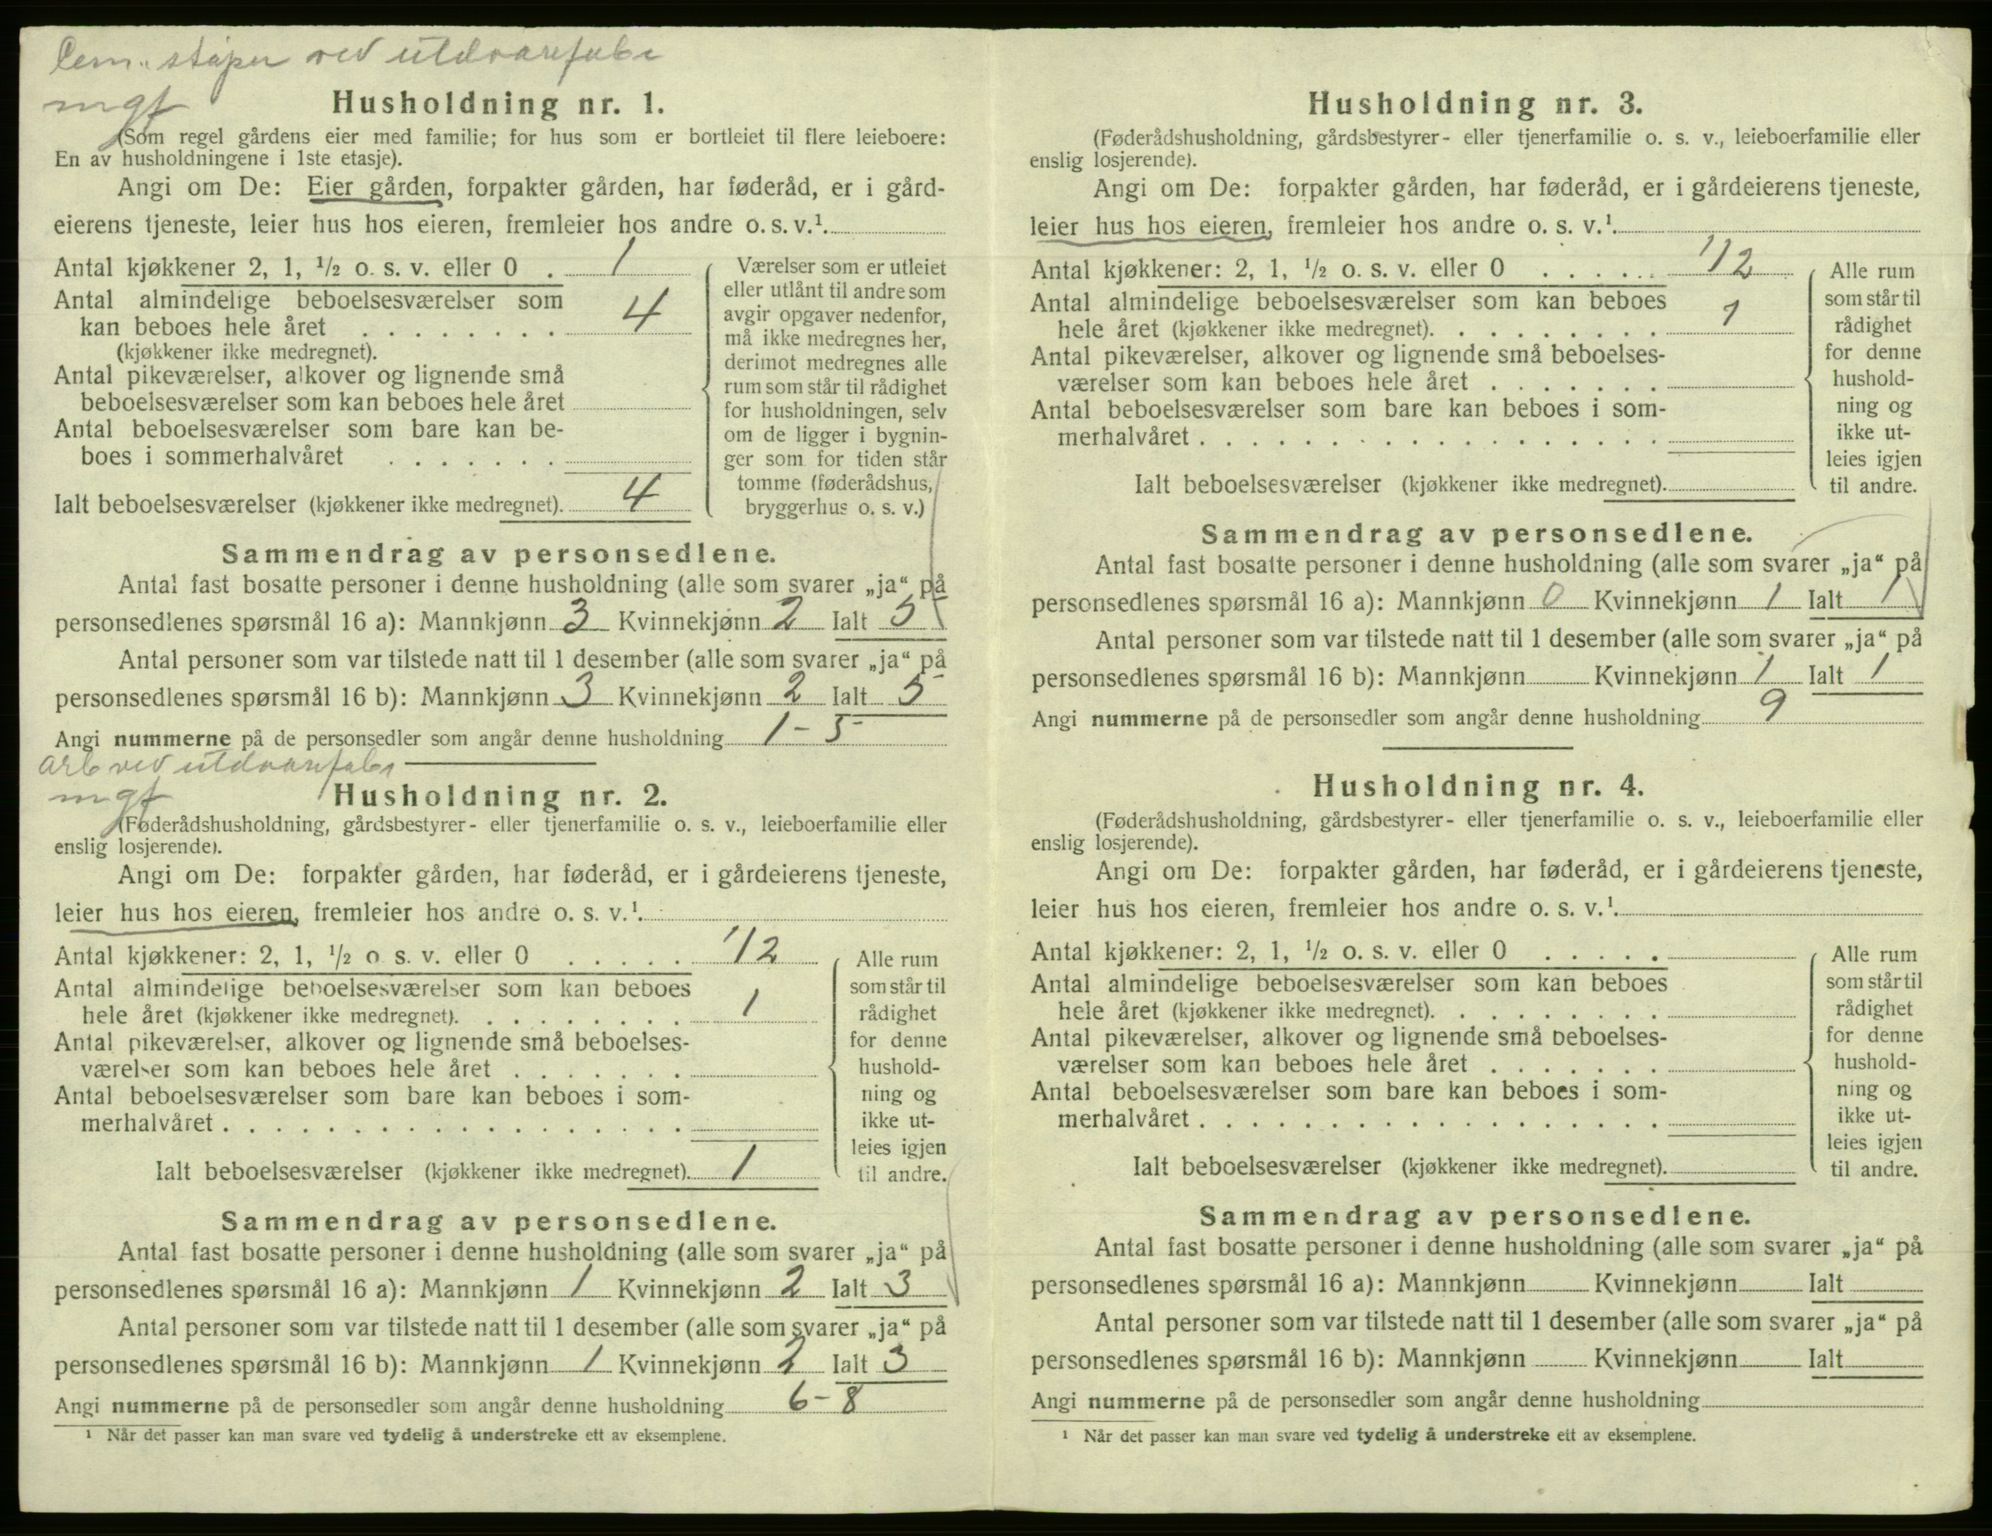 Cem. støper ved utdvarefabr
mgf
Husholdning nr. 1.
(Som regel gårdens eier med familie; for hus som er bortleiet til flere leieboere:
En av husholdningene i 1ste etasje).
Angi om De: Eier gården, forpakter gården, har føderåd, er i gård-
eierens tjeneste, leier hus hos eieren, fremleier hos andre o. s. v.¹
Antal kjøkkener 2, 1, ½ o. s. v. eller 0 . 1
Antal almindelige beboelsesværelser som
kan beboes hele året . . . . . . . . 4
(kjøkkener ikke medregnet).
Antal pikeværelser, alkover og lignende små
beboelsesværelser som kan beboes hele året
Antal beboelsesværelser som bare kan be-
boes i sommerhalvåret . . . . . . .
Ialt beboelsesværelser (kjøkkener ikke medregnet). 4
Værelser som er utleiet
eller utlånt til andre som
avgir opgaver nedenfor,
må ikke medregnes her,
derimot medregnes alle
rum som står til rådighet
for husholdningen, selv
om de ligger i bygnin-
ger som for tiden står
tomme (føderådshus,
bryggerhus o. s. v.)
Sammendrag av personsedlene.
Antal fast bosatte personer i denne husholdning (alle som svarer „ja“ på
personsedlenes spørsmål 16 a): Mannkjønn 3 Kvinnekjønn 2 Ialt 5
Antal personer som var tilstede natt til 1 desember (alle som svarer „ja“ på
personsedlenes spørsmål 16 b): Mannkjønn 3 Kvinnekjønn 2 Ialt 5
Angi nummerne på de personsedler som angår denne husholdning 1-5
arb ved utdvarefabr
mgf
Husholdning nr. 2.
(Føderådshusholdning, gårdsbestyrer- eller tjenerfamilie o. s. v., leieboerfamilie eller
enslig losjerende).
Angi om De: forpakter gården, har føderåd, er i gårdeierens tjeneste,
leier hus hos eieren, fremleier hos andre o. s. v.¹
Antal kjøkkener: 2, 1, ½ o. s. v. eller 0 . . . . . 1/2
Antal almindelige beboelsesværelser som kan beboes
hele året (kjøkkener ikke medregnet). . . . . . . . . 1
Antal pikeværelser, alkover og lignende små beboelses-
værelser som kan beboes hele året . . . . . . .
Antal beboelsesværelser som bare kan beboes i som-
merhalvåret . . . . . . . . . . . . . . . . . .
Ialt beboelsesværelser (kjøkkener ikke medregnet). 1
Alle rum
som står til
rådighet
for denne
hushold-
ning og
ikke ut-
leies igjen
til andre.
Sammendrag av personsedlene.
Antal fast bosatte personer i denne husholdning (alle som svarer „ja“ på
personsedlenes spørsmål 16 a): Mannkjønn 1 Kvinnekjønn 2 Ialt 3
Antal personer som var tilstede natt til 1 desember (alle som svarer „ja“ på
personsedlenes spørsmål 16 b): Mannkjønn 1 Kvinnekjønn 2 Ialt 3
Angi nummerne på de personsedler som angår denne husholdning 6-8
¹ Når det passer kan man svare ved tydelig å understreke ett av eksemplene.
Husholdning nr. 3.
(Føderådshusholdning, gårdsbestyrer- eller tjenerfamilie o. s. v., leieboerfamilie eller
enslig losjerende).
Angi om De: forpakter gården, har føderåd, er i gårdeierens tjeneste,
leier hus hos eieren, fremleier hos andre o. s. v.¹
Antal kjøkkener: 2, 1, ½ o. s. v. eller 0 . . . . . 1/2
Antal almindelige beboelsesværelser som kan beboes
hele året (kjøkkener ikke medregnet). . . . . . . . . 1
Antal pikeværelser, alkover og lignende små beboelses-
værelser som kan beboes hele året . . . . . . .
Antal beboelsesværelser som bare kan beboes i som-
merhalvåret . . . . . . . . . . . . . . . . . .
Ialt beboelsesværelser (kjøkkener ikke medregnet).
Alle rum
som står til
rådighet
for denne
hushold-
ning og
ikke ut-
leies igjen
til andre.
Sammendrag av personsedlene.
Antal fast bosatte personer i denne husholdning (alle som svarer „ja“ på
personsedlenes spørsmål 16 a): Mannkjønn 0 Kvinnekjønn 1 Ialt 1
Antal personer som var tilstede natt til 1 desember (alle som svarer „ja“ på
personsedlenes spørsmål 16 b): Mannkjønn Kvinnekjønn 1 Ialt 1
Angi nummerne på de personsedler som angår denne husholdning 9
Husholdning nr. 4.
(Føderådshusholdning, gårdsbestyrer- eller tjenerfamilie o. s. v., leieboerfamilie eller
enslig losjerende).
Angi om De: forpakter gården, har føderåd, er i gårdeierens tjeneste,
leier hus hos eieren, fremleier hos andre o. s. v.¹
Antal kjøkkener: 2, 1, ½ o. s. v. eller 0 . . . . .
Antal almindelige beboelsesværelser som kan beboes
hele året (kjøkkener ikke medregnet). . . . . . . . .
Antal pikeværelser, alkover og lignende små beboelses-
værelser som kan beboes hele året . . . . . . .
Antal beboelsesværelser som bare kan beboes i som-
merhalvåret . . . . . . . . . . . . . . . . . .
Ialt beboelsesværelser (kjøkkener ikke medregnet).
Alle rum
som står til
rådighet
for denne
hushold-
ning og
ikke ut-
leies igjen
til andre.
Sammendrag av personsedlene.
Antal fast bosatte personer i denne husholdning (alle som svarer „ja“ på
personsedlenes spørsmål 16 a): Mannkjønn Kvinnekjønn Ialt
Antal personer som var tilstede natt til 1 desember (alle som svarer „ja“ på
personsedlenes spørsmål 16 b): Mannkjønn Kvinnekjønn Ialt
Angi nummerne på de personsedler som angår denne husholdning
¹ Når det passer kan man svare ved tydelig å understreke ett av eksemplene.